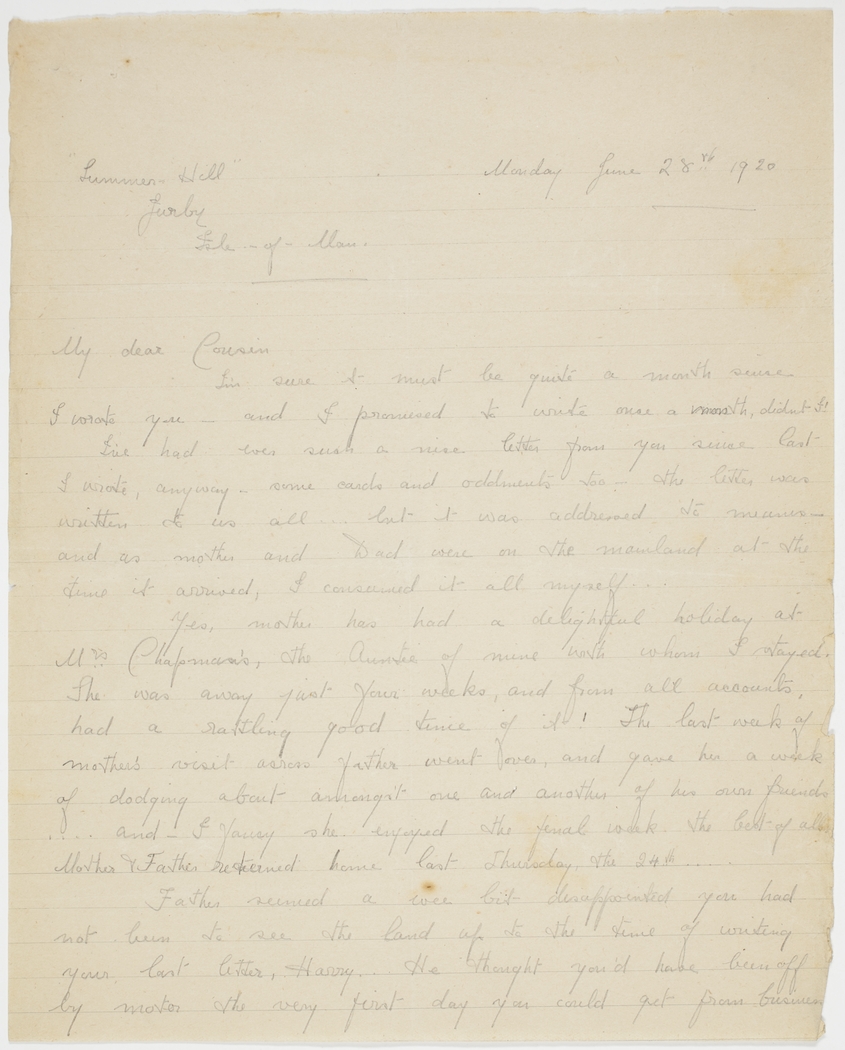 "Summer-Hill" Monday June 28th 1920
Jurby
Isle-of-Man.
My dear Cousin
I'm sure it must be quite a month since
I wrote you - and I promised to write once a month, didn't I!
I've had ever such a nice letter from you since last
I wrote, anyway - some cards and oddments too - the letter was
written to us all ... but it was addressed to me
and as mother and Dad were on the mainland at the
time it arrived, I consumed it all myself....
Yes, mother has had a delightful holiday at
Mrs Chapman's, the Auntie of mine with whom I stayed.
She was away just four weeks, and from all accounts,
had a rattling good time of it! The last week of
mother's visit across father went over, and gave her a week
of dodging about amongst one and another of his own friends
.... and - I fancy she enjoyed the final week the best of all
Mother & Father returned home last Thursday, the 24th .....
Father seemed a wee bit disappointed you had
not been to see the land up to the time of writing
your last letter, Harry... He thought you'd have been off
by motor the very first day you could get from business